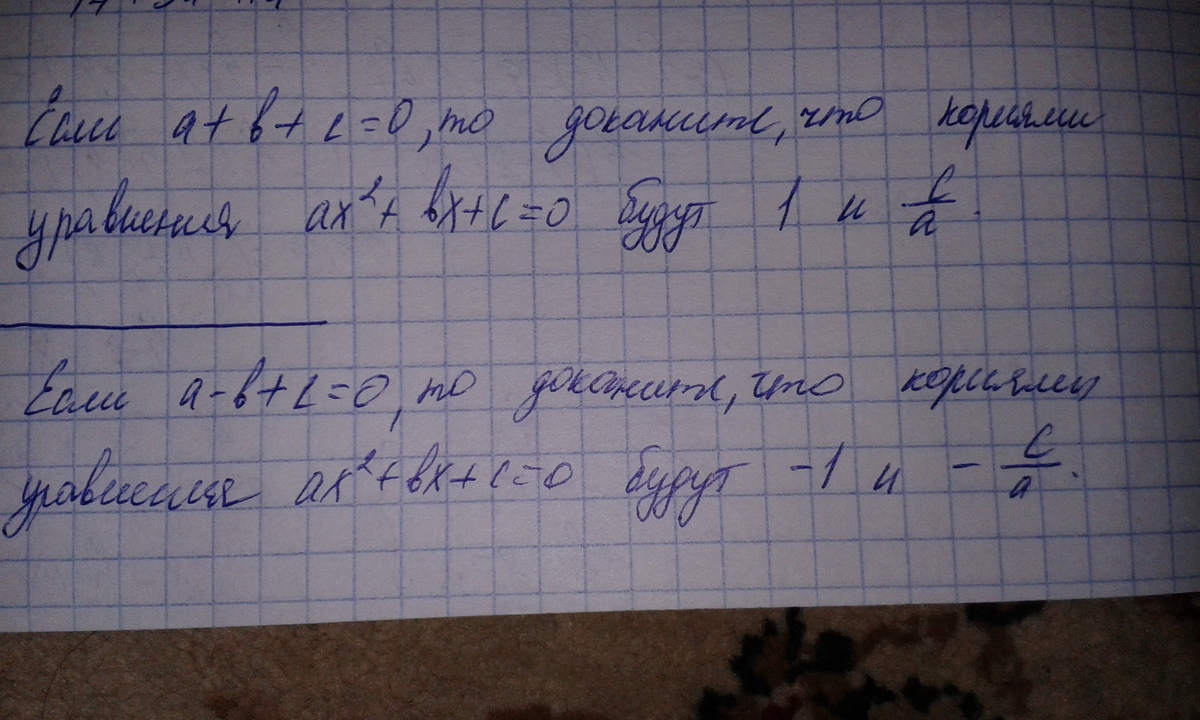 Если a + b + c = 0, то докажите, что корнями
уравнения ax² + bx + c = 0 будут 1 и c/a.
Если a - b + c = 0, то докажите, что корнями
уравнения ax² + bx + c = 0 будут -1 и - c/a.